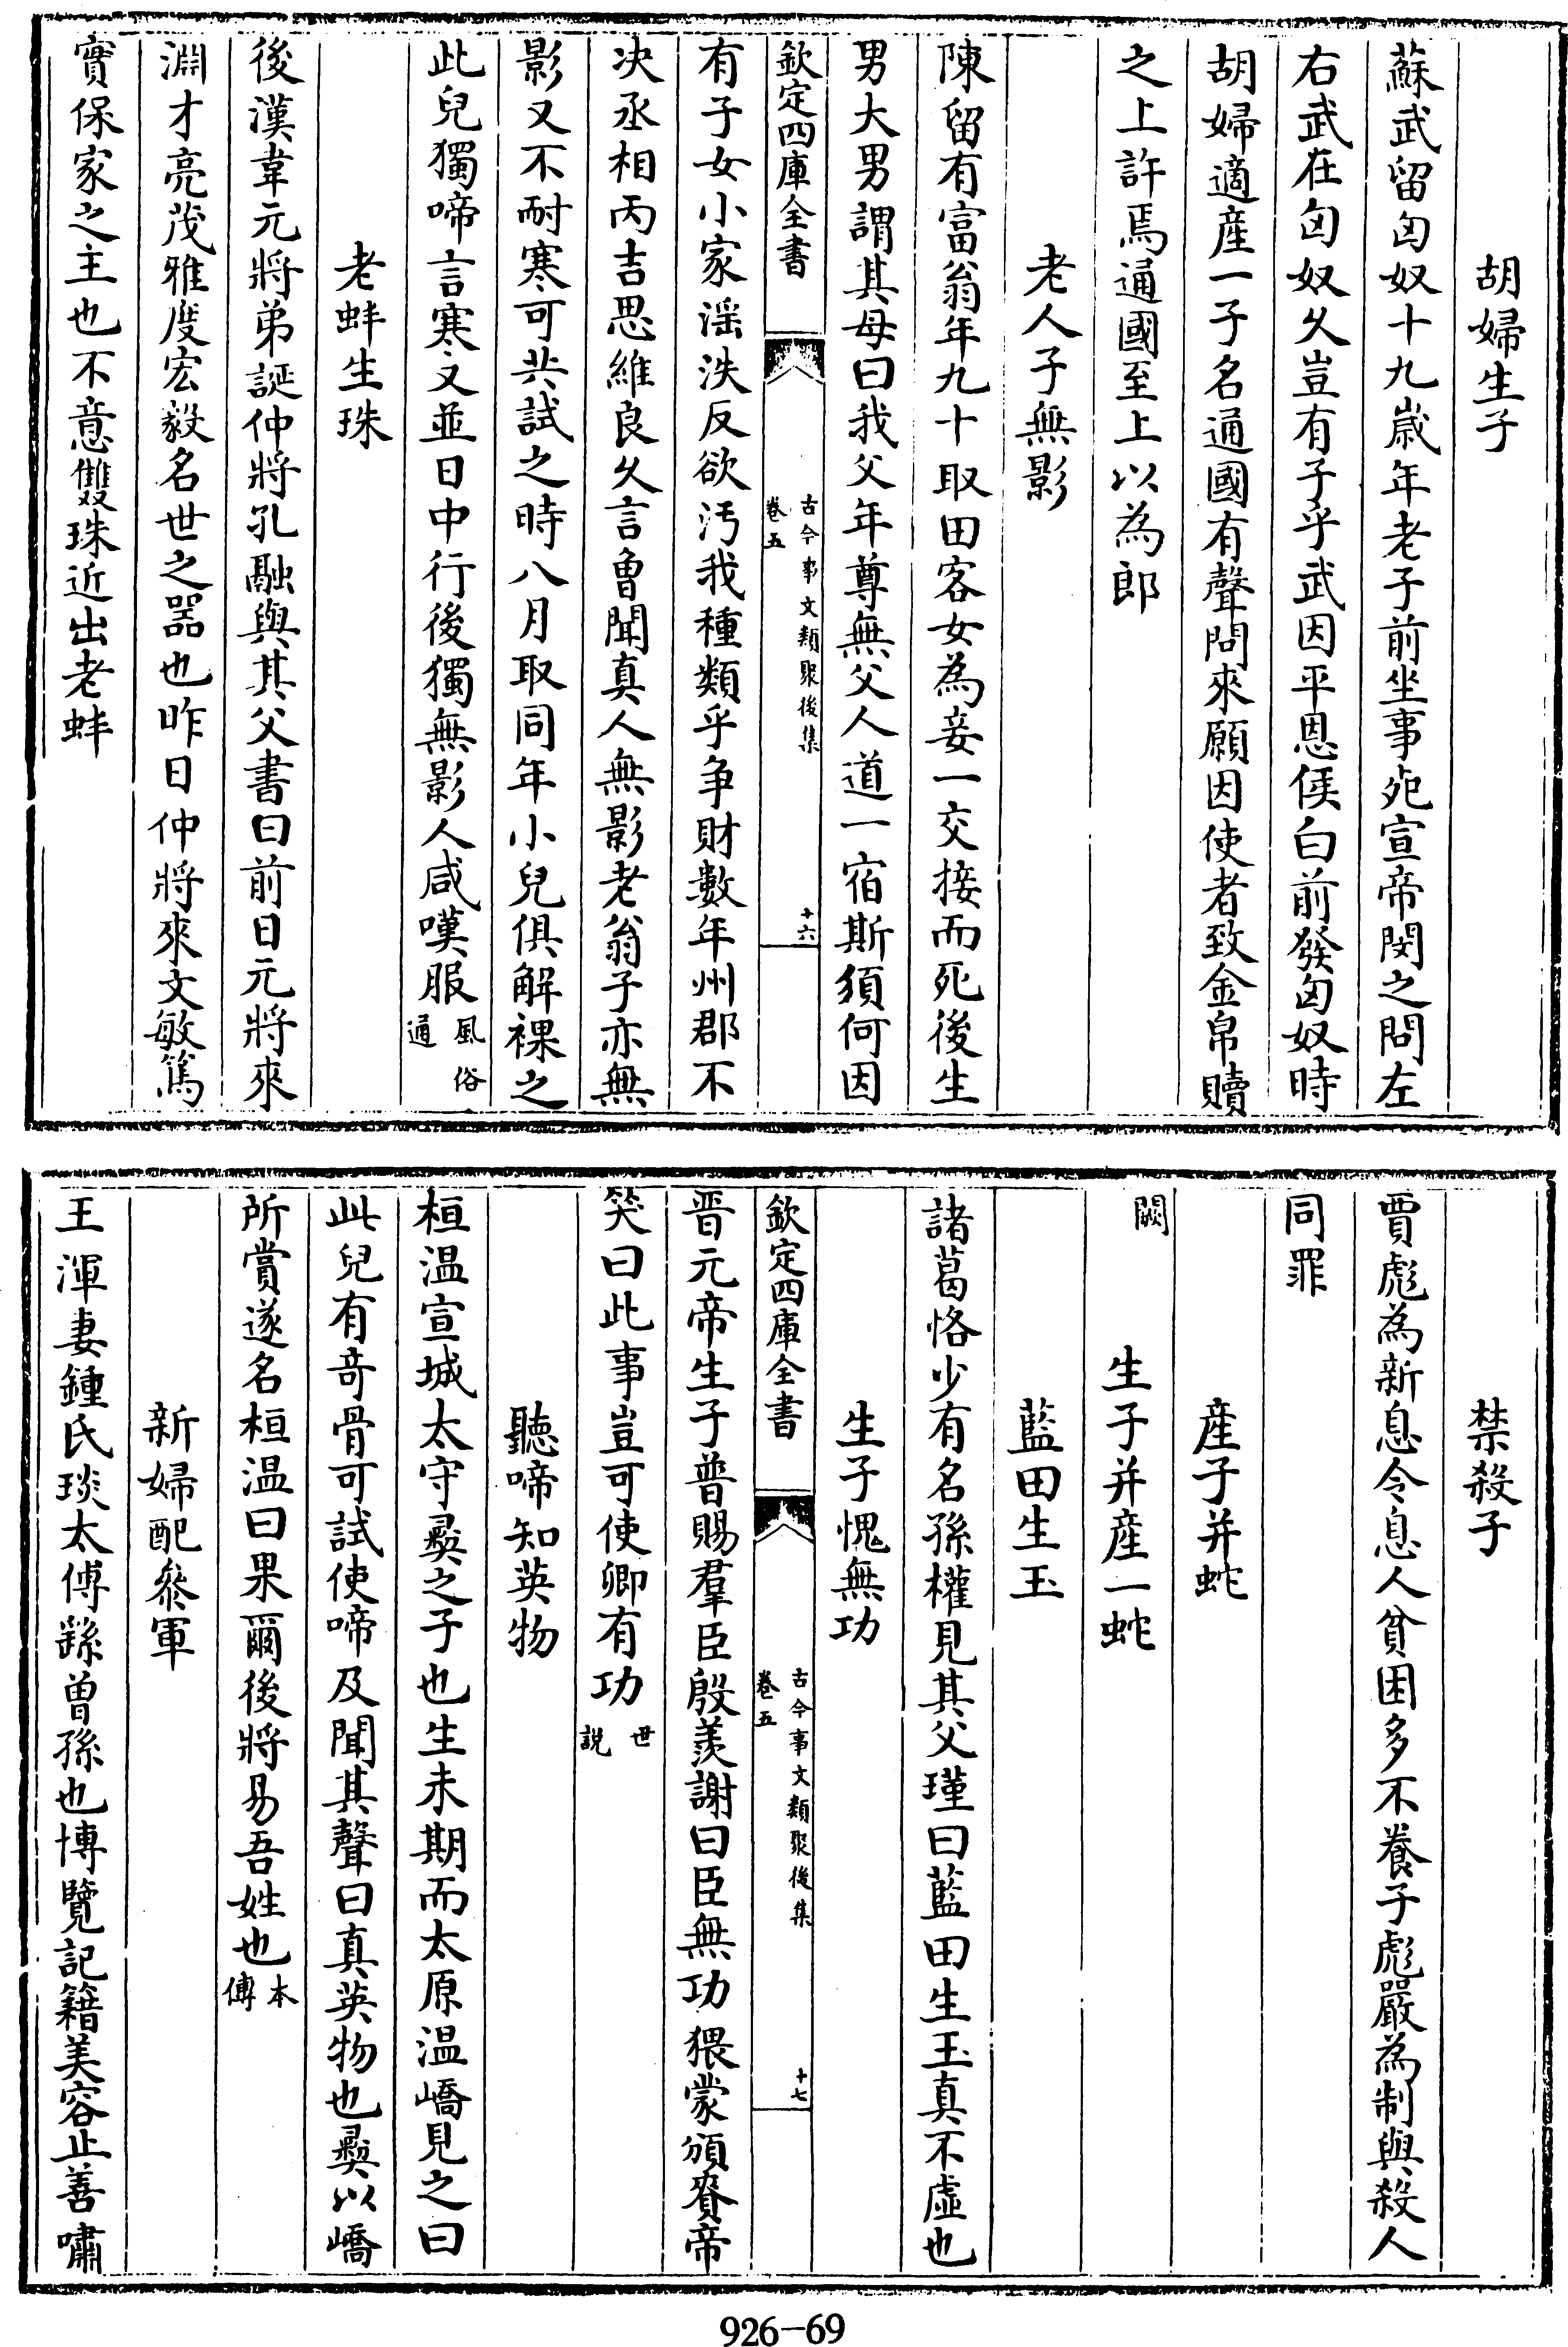 胡婦生子
蘇武留匈奴十九歲年老子前坐事死宣帝閔之問左
右武在匈奴久豈有子乎武因平恩侯白前發匈奴時
胡婦適產一子名通國有聲問來願因使者致金帛贖
之上許焉通國至上以為郎
老人子無影
陳留有富翁年九十取田客女為妾一交接而死後生
男大男謂其母曰我父年尊無父人道一宿斯須何因
欽定四庫全書
古今事文類聚後集
卷五
十六
有子女小家淫泆反欲汚我種類乎爭財數年州郡不
決丞相丙吉思維良久言曾聞真人無影老翁子亦無
影又不耐寒可共試之時八月取同年小兒俱解裸之
此兒獨啼言寒又並日中行後獨無影人咸嘆服風俗
通
老蚌生珠
後漢韋元將弟誕仲將孔融與其父書曰前日元將來
淵才亮茂雅度宏毅名世之器也昨日仲將來文敏篤
實保家之主也不意雙珠近出老蚌
禁殺子
賈彪為新息令息人貧困多不養子彪嚴為制與殺人
同罪
產子并蛇
闕
生子并產一蛇
藍田生玉
諸葛恪少有名孫權見其父瑾曰藍田生玉真不虛也
生子愧無功
欽定四庫全書
古今事文類聚後集
卷五
十七
晉元帝生子普賜羣臣殷羨謝曰臣無功猥蒙頒賚帝
笑曰此事豈可使卿有功世
說
聽啼知英物
桓温宣城太守彞之子也生未期而太原温嶠見之曰
此兒有奇骨可試使啼及聞其聲曰真英物也彞以嶠
所賞遂名桓温曰果爾後將易吾姓也本
傳
新婦配參軍
王渾妻鍾氏琰太傅繇曾孫也博覽記籍美容止善嘯
926-69